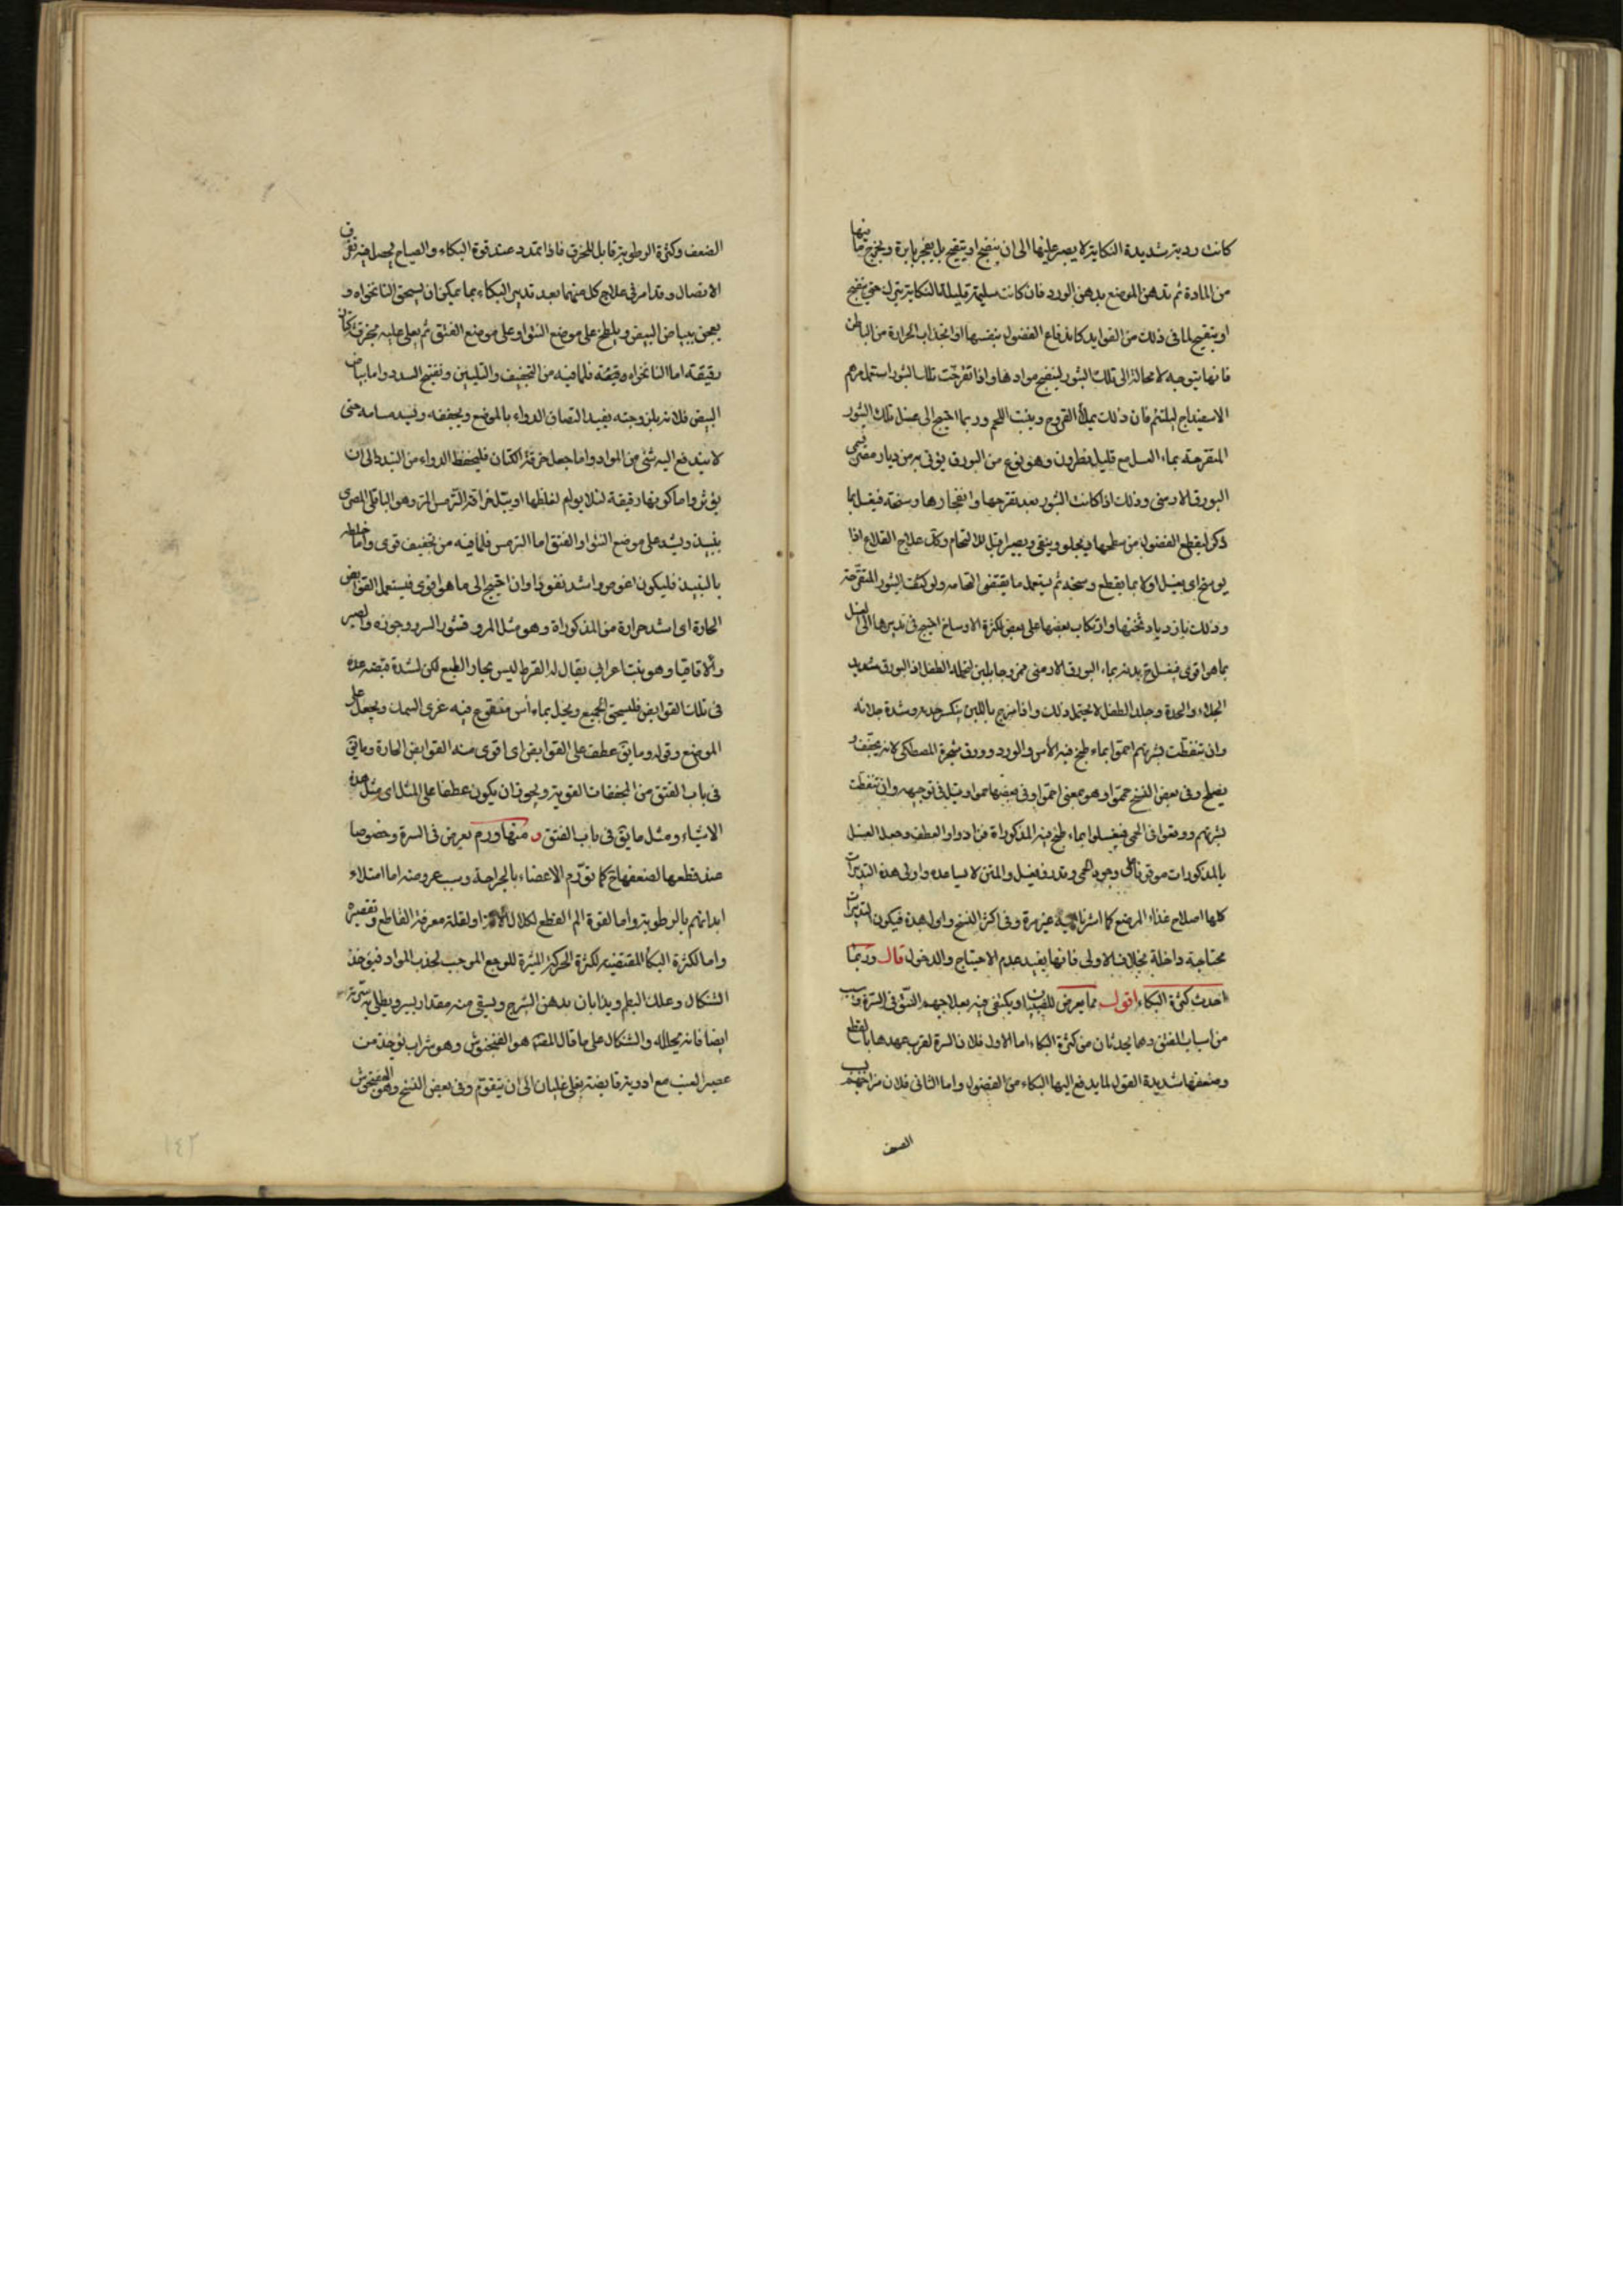 كانت ردية شديدة النكاية لا يصبر عليها الى ان ينضج او يتقيح بل يفجر بابرة ويخرج ما فيها
من المادة ثم يدهن الموضع بدهن الورد فان كانت سليمة قليلة النكاية يترك حتى ينضج
او يتقيح لما فى ذلك من الفوايد كاندفاع الفضول بنفسها او انجذاب الحرارة من الباطن
فانها يتوجه لا محالة الى تلك البثور لينضج موادها واذا تقرحت تلك البثور استعمل مرهم
الاسفيداج ليلتئم فان ذلك يملأ القروح وينبت اللحم وربما احتيج الى غسل تلك البثور
المتقرحة بماء العسل مع قليل نطرون وهو نوع من البورق يؤتى به من ديار مصر
البورق الارمنى وذلك اذا كانت البثور بعد تقرحها وانفجارها وسخة فيغسل بما
ذكر ليقطع الفضول من سطحها ويجلو وينقى ويصير قابلا للالتحام وكك علاج القلاع اذا
يوسخ اى يغسل اولا بما يقطع وسخه ثم يستعمل ما يقتضى التحامه ولو كثفت البثور المتقرحة
وذلك بازدياد ثخنها وارتكاب بعضها على بعض لكثرة الاوساخ احتيج فى تدبيرها الى الغسل
بما هو اقوى فيغسل ح بدنه بماء البورق الارمنى ممزوجا بلبن ليحتمله الطفل اذ البورق شديد
الجلاء والحدة وجلد الطفل لا يحتمل ذلك واذا مزج باللبن ينكسر حدته وشدة جلائه
وان تنفطت بشرتهم احموا بماء طبخ فيه الآس والورد وورق شجرة المصطكى لانه يجفف و
يصلح وفى بعض النسخ حمموا وهو بمعنى احموا وفى بعضها حموا وقيل فى توجيهه وان تنفطت
بشرتهم ووقعوا فى الحمى فيغسلوا بماء طبخ فيه المذكوراة فزاد واو العطف وجعل الغسل
بالمذكورات موقوفا على وجود الحمى وقد زيف قيل والمتن لا يساعده واولى هذه التدبيرات
كلها اصلاح غذاء المرضع كما اشرنا اليه غير مرة وفى اكثر النسخ واول هذه فيكون التدبيرات
محتاجة داخلة بخلاف الاولى فانها يفيد عدم الاحتياج والدخول قال وربما
احدث كثرة البكاء اقول مما يعرض للصبيان او يكتفى فيه بعلاجهم النتو فى السرة وسبب
من اسباب الفتق وهما يحدثان من كثرة البكاء اما الاول فلان السرة لقرب عهدها بالقطع
وضعفها شديدة القبول لما يدفع اليها البكاء من الفضول واما الثانى فلان مزاجهم
الضعف
الضعف وكثرة الرطوبة قابل للخرق فاذا تمدد عند قوة البكاء والصياح يحصل فيه تفرق
الاتصال وقد امر فى علاج كل منهما بعد تدبير البكاء بما يمكن ان يسحق النانخواه و
يعجن ببياض البيض ويلطخ على موضع النتو او على موضع الفتق ثم يعلى عليه بخرقة كتان
رقيقة اما النانخواه ودقيقه فلما فيه من التجفيف والتليين وتفتيح السدد واما بياض
البيض فلانه بلزوجته يفيد التصاق الدواء بالموضع ويجففه ويسد مسامه حتى
لا يندفع اليه شئ من المواد واما جعل خرقة الكتان فليحفظ الدواء من التبدد الى ان
يؤثر واما كونها رقيقة لئلا يولم لغلظها او يبل حراقة الترمس المر وهو الباقلى المصرى
بنبيذ ويشد على موضع النتو او الفتق اما الترمس فلما فيه من تجفيف قوى واما خلطه
بالنبيذ فليكون اغوص واشد نفوذا وان احتيج الى ما هو اقوى فيستعمل القوابض
الحارة اى اشد حرارة من المذكوراة وهو مثل المر وقشور السرو وجوزه والصبر
والاقاقيا وهو نبت اعرابى يقال له القرط ليس بحار الطبع لكن لشدة قبضه عده
فى تلك القوابض فليسحق الجميع ويحل بماء آس منقوع فيه غرى السمك ويجعل على
الموضع وقوله وما يق عطف على القوابض اى اقوى منه القوابض الحارة وما يق
فى باب الفتق من المجففات القوية ويجوز ان يكون عطفا على المثل اى مثل هذه
الاشياء ومثل ما يق فى باب الفتق و منها ورم يعرض فى السرة وخصوصا
عند قطعها لضعفها ح كما تورم الاعضاء بالجراحة وسبب عروضه اما امتلاء
ابدانهم بالرطوبة واما لقوة الم القطع لكلال الآلة او لقلة معرفة القاطع وتقصيره
واما لكثرة البكاء المقتضية لكثرة الحركة المثيرة للوجع الموجب لجذب المواد فيؤخذ
الشنكال وعلك البطم ويذابان بدهن الشيرج ويسقى منه مقدار يسير ويطلى به سرته
ايضا فانه يحلله والشنكال على ما قال المقدم هو الفنجنوش وهو شراب يؤخذ من
عصير العنب مع ادوية قابضة يغلى غليان الى ان يتقوم وفى بعض النسخ وهو